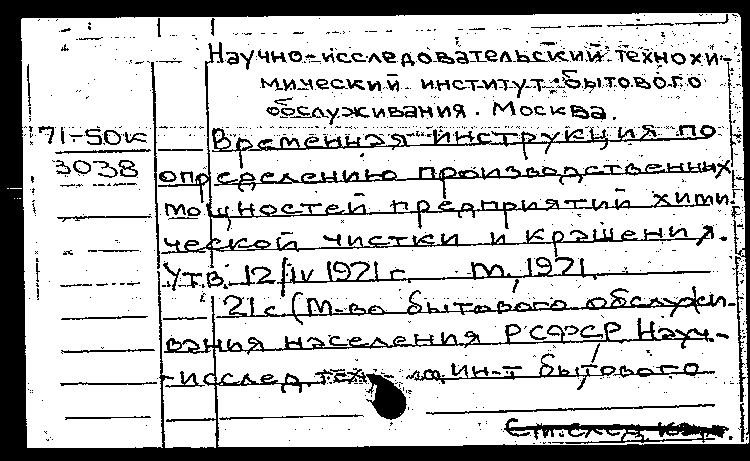 Научно-исследовательский технохи-
мический институт бытового
обслуживания. Москва.
71-50к
3038
Временная инструкция по
определению производственных
мощностей предприятий хими-
ческой чистки и крашения.
Утв. 12/IV 1971 г. М., 1971.
21 с. (М-во бытового обслужи-
вания населения РСФСР. Науч-
-исслед. ин-т бытового
См. след. карт.